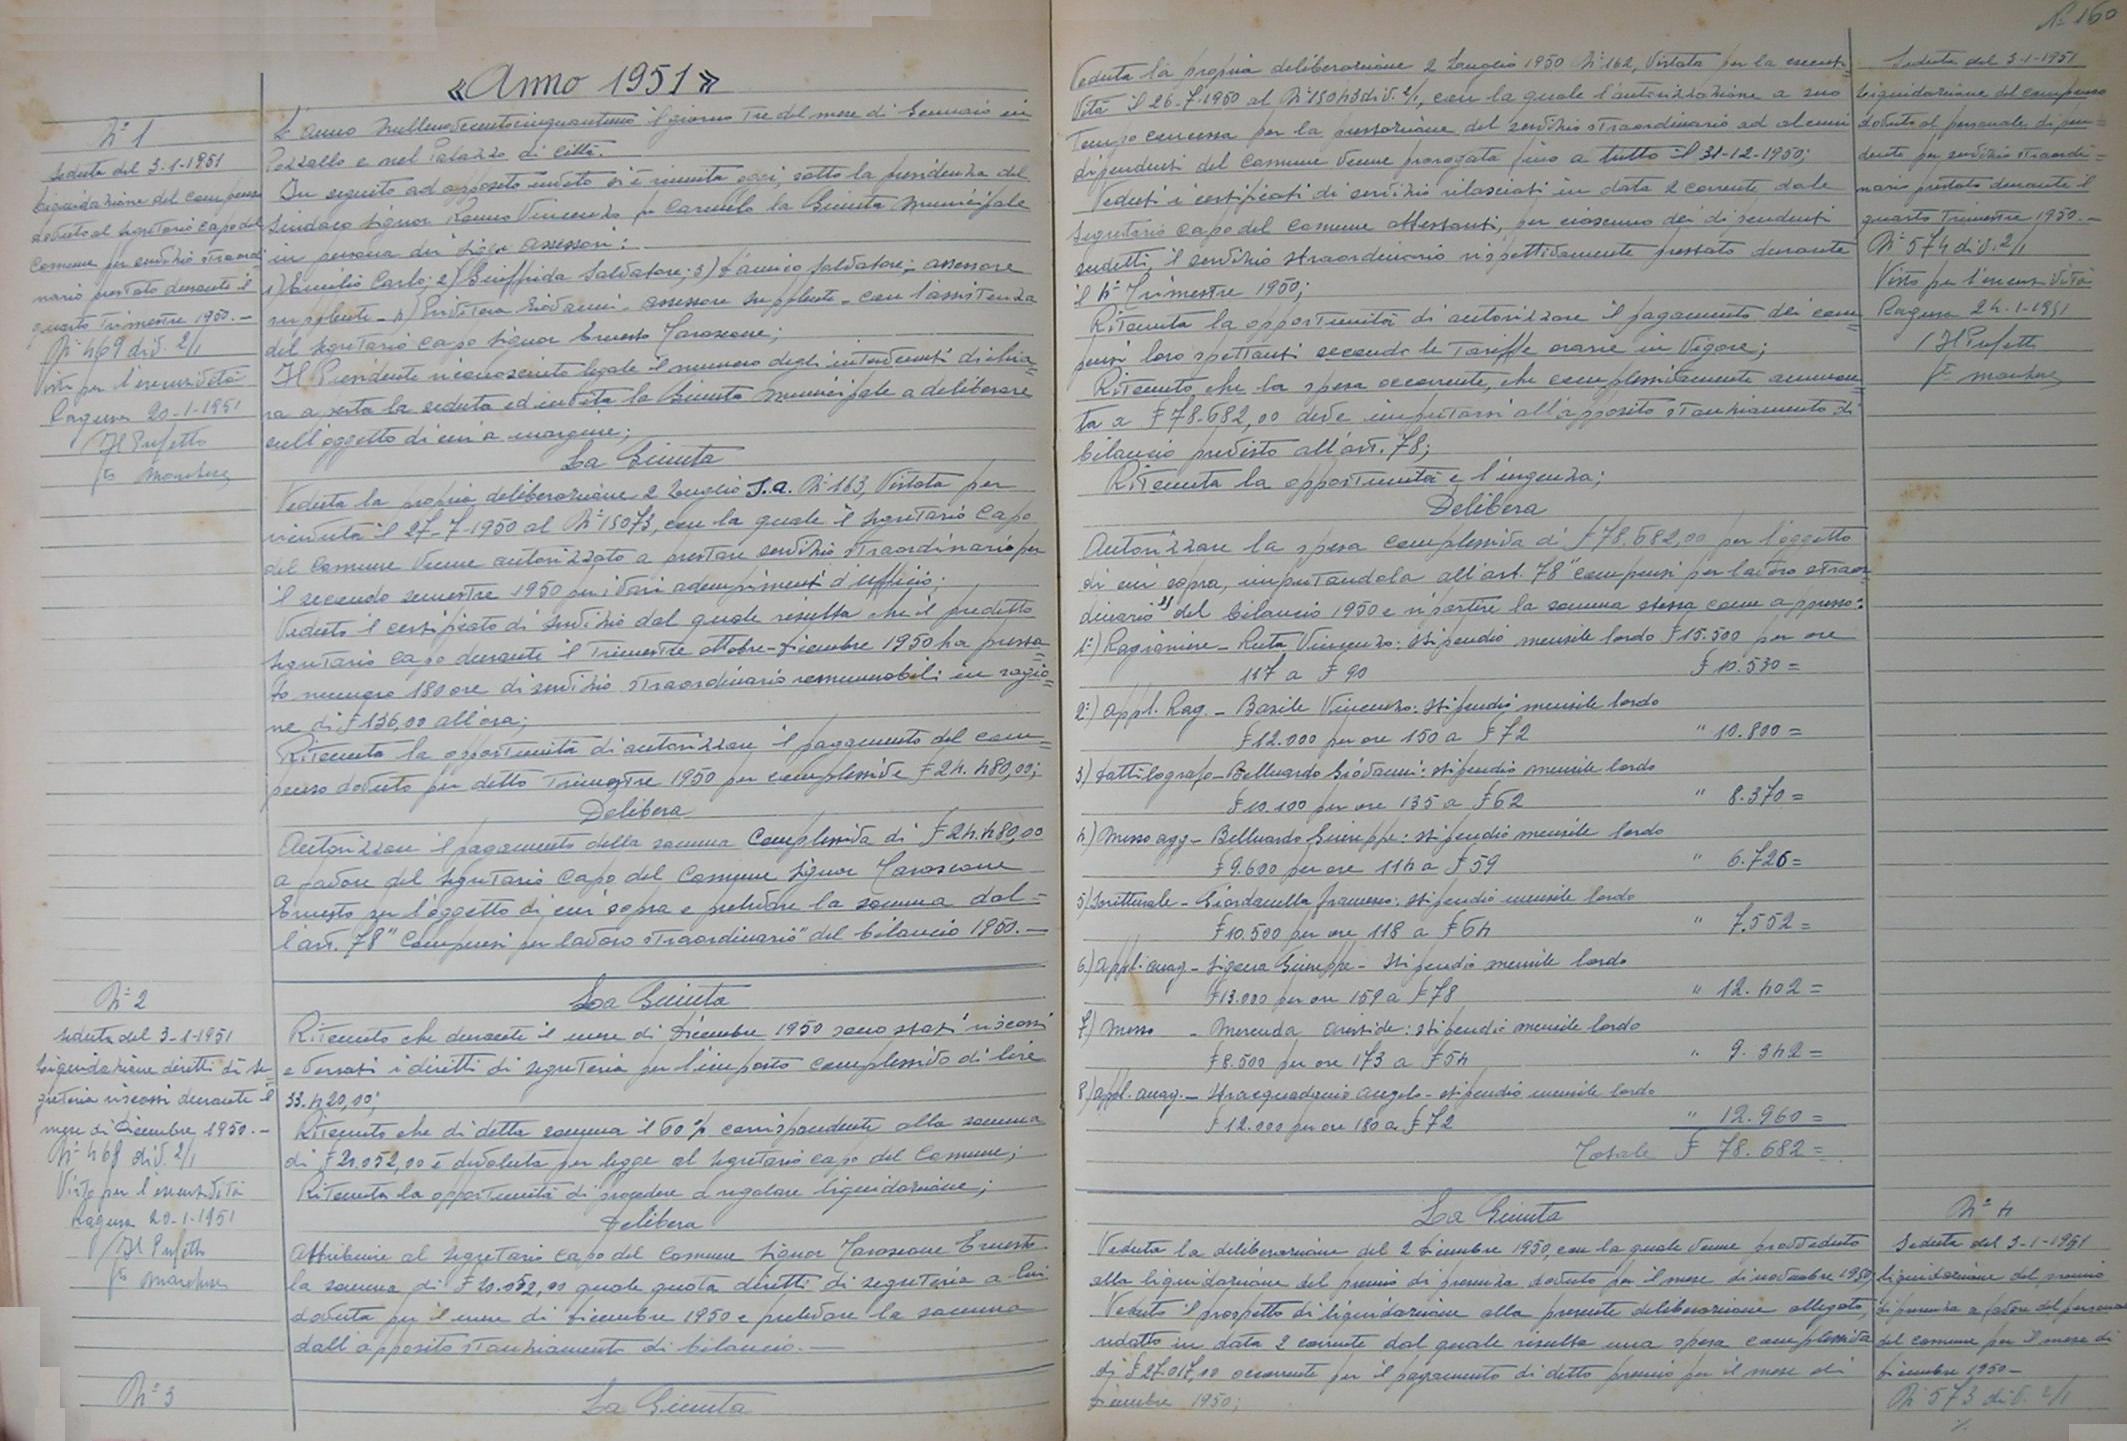 «Anno 1951»
N° 1
Seduta del 3-1-1951
Liquidazione del compenso
dovuto al Segretario capo del
Comune per servizio straordi=
nario prestato durante il
quarto Trimestre 1950.—
N° 469 div. 2/1
Visto per l'esecutività
Ragusa 20-1-1951
Il Prefetto
fto
L'anno millenovecentocinquantuno il giorno Tre del mese di Gennaio in
Pozzallo e nel Palazzo di Città.
In seguito ad apposito invito si è riunita oggi, sotto la presidenza del
Sindaco Signor Vincenzo fu Carmelo la Giunta Municipale
in persona dei Sigg. Assessori:
1) Emilio Carlo; 2) Giuffrida Salvatore; 3) D'amico Salvatore; - assessore
supplente - 4) Giovanni - assessore supplente - con l'assistenza
del Segretario capo Signor Ernesto Tarascone;
Il Presidente riconosciuto legale il numero degli intervenuti dichia=
ra aperta la seduta ed invita la Giunta Municipale a deliberare
sull'oggetto di cui a margine;
La Giunta
Veduta la propria deliberazione 2 Luglio S.a. N° 163, Vistata per
il 27-7-1950 al N° 15073, con la quale il Segretario Capo
del Comune venne autorizzato a prestare servizio straordinario per
il secondo semestre 1950 per i vari adempimenti d'ufficio.
Veduto il certificato di servizio dal quale risulta che il predetto
Segretario capo durante il Trimestre ottobre-Dicembre 1950 ha presta=
to numero 180 ore di servizio straordinario remunerabili in ragio=
ne di £ 136,00 all'ora;
Ritenuta la opportunità di autorizzare il pagamento del com=
penso dovuto per detto Trimestre 1950 per complessive £ 24.480,00;
Delibera
Autorizzare il pagamento della somma complessiva di £ 24.480,00
a favore del Segretario Capo del Comune Signor Tarascone
Ernesto per l'oggetto di cui sopra e prelevare la somma dal=
l'art. 78 "Compensi per lavoro straordinario" del bilancio 1950.—
N° 2
Seduta del 3-1-1951
Liquidazione diritti di se=
greteria riscossi durante il
mese di Dicembre 1950.—
N° 468 div. 2/1
Visto per l'esecutività
Ragusa 20-1-1951
Il Prefetto
fto
La Giunta
Ritenuto che durante il mese di Dicembre 1950 sono stati riscossi
e versati i diritti di segreteria per l'importo complessivo di lire
33.420,00;
Ritenuto che di detta somma il 60% corrispondente alla somma
di £ 20.052,00 è devoluta per legge al Segretario capo del Comune;
Ritenuta la opportunità di procedere a regolare liquidazione;
Delibera
Attribuire al Segretario Capo del Comune Signor Tarascone Ernesto
la somma di £ 20.052,00 quale quota diritti di segreteria a lui
dovuta per il mese di Dicembre 1950 e prelevare la somma
dall'apposito stanziamento di bilancio.—
N° 3
La Giunta
N° 160
Veduta la propria deliberazione 2 Luglio 1950 N° 162, Vistata per la esecuti=
vità il 26-7-1950 al N° 15043 div. 2/1, con la quale l'autorizzazione a suo
Tempo concessa per la prestazione del servizio straordinario ad alcuni
dipendenti del Comune venne prorogata fino a tutto il 31-12-1950;
Veduti i certificati di servizio rilasciati in data 2 corrente dal
Segretario capo del Comune attestanti, per ciascuno dei dipendenti
sudetti, il servizio straordinario rispettivamente prestato durante
il 4° Trimestre 1950;
Ritenuta la opportunità di autorizzare il pagamento dei com=
pensi loro spettanti secondo le Tariffe orarie in vigore;
Ritenuto che la spesa occorrente, che complessivamente ammon=
ta a £ 78.682,00 deve imputarsi all'apposito stanziamento di
bilancio previsto all'art. 78;
Ritenuta la opportunità e l'urgenza;
Delibera
Autorizzare la spesa complessiva di £ 78.682,00 per l'oggetto
di cui sopra, imputandola all'art. 78 "compensi per lavoro straor=
dinario" del bilancio 1950 e ripartire la somma stessa come appresso:
1°) Ragioniere - Ruta Vincenzo: stipendio mensile lordo £ 15.500 per ore
117 a £ 90 £ 10.530=
2°) Appl. Rag. - Basile Vincenzo: stipendio mensile lordo
£ 12.000 per ore 150 a £ 72 " 10.800=
3) Dattilografo - Belluardo Giovanni: stipendio mensile lordo
£ 10.100 per ore 135 a £ 62 " 8.370=
4) Messo agg - Belluardo Giuseppe: stipendio mensile lordo
£ 9.600 per ore 114 a £ 59 " 6.726=
5) Scritturale - Giordanella Francesco: stipendio mensile lordo
£ 10.500 per ore 118 a £ 64 " 7.552=
6) Appl. anag - Sigona Giuseppe - stipendio mensile lordo
£ 13.000 per ore 159 a £ 78 " 12.402=
7) Messo - Merenda Aristide: stipendio mensile lordo
£ 8.500 per ore 173 a £ 54 " 9.342=
8) Appl. anag. - Stracquadanio Angelo - stipendio mensile lordo
£ 12.000 per ore 180 a £ 72 " 12.960=
Totale £ 78.682=
Seduta del 3-1-1951
Liquidazione del compenso
dovuto al personale dipen=
dente per servizio straordi=
nario prestato durante il
quarto Trimestre 1950.—
N° 574 div. 2/1
Visto per l'esecutività
Ragusa 24-1-1951
Il Prefetto
fto
La Giunta
Veduta la deliberazione del 2 Dicembre 1950, con la quale venne provveduto
alla liquidazione del premio di presenza dovuto per il mese di novembre 1950;
Veduto il prospetto di liquidazione alla presente deliberazione allegato,
redatto in data 2 corrente dal quale risulta una spesa complessiva
di £ 27.017,00 occorrente per il pagamento di detto premio per il mese di
Dicembre 1950;
N° 4
Seduta del 3-1-1951
Liquidazione del premio
di presenza a favore del personale
del comune per il mese di
Dicembre 1950—
N° 573 div. 2/1